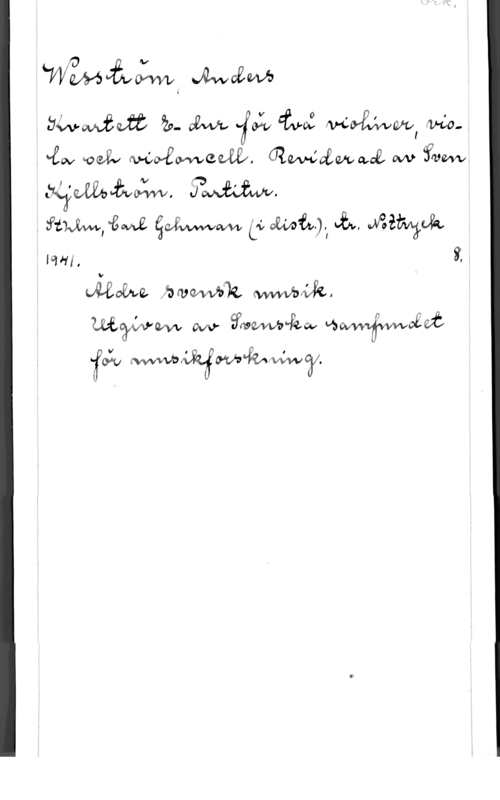 Wesström, Anders
Kvartett E-dur för två violiner, vio-
la och violoncell. Reviderad av Sven
Kjellström. Partitur.
Sthlm, Carl Gehrman (i distr.), tr. Nottryck
1941. 8.
Äldre svensk musik.
Utgiven av Svenska samfundet
för musikforskning.